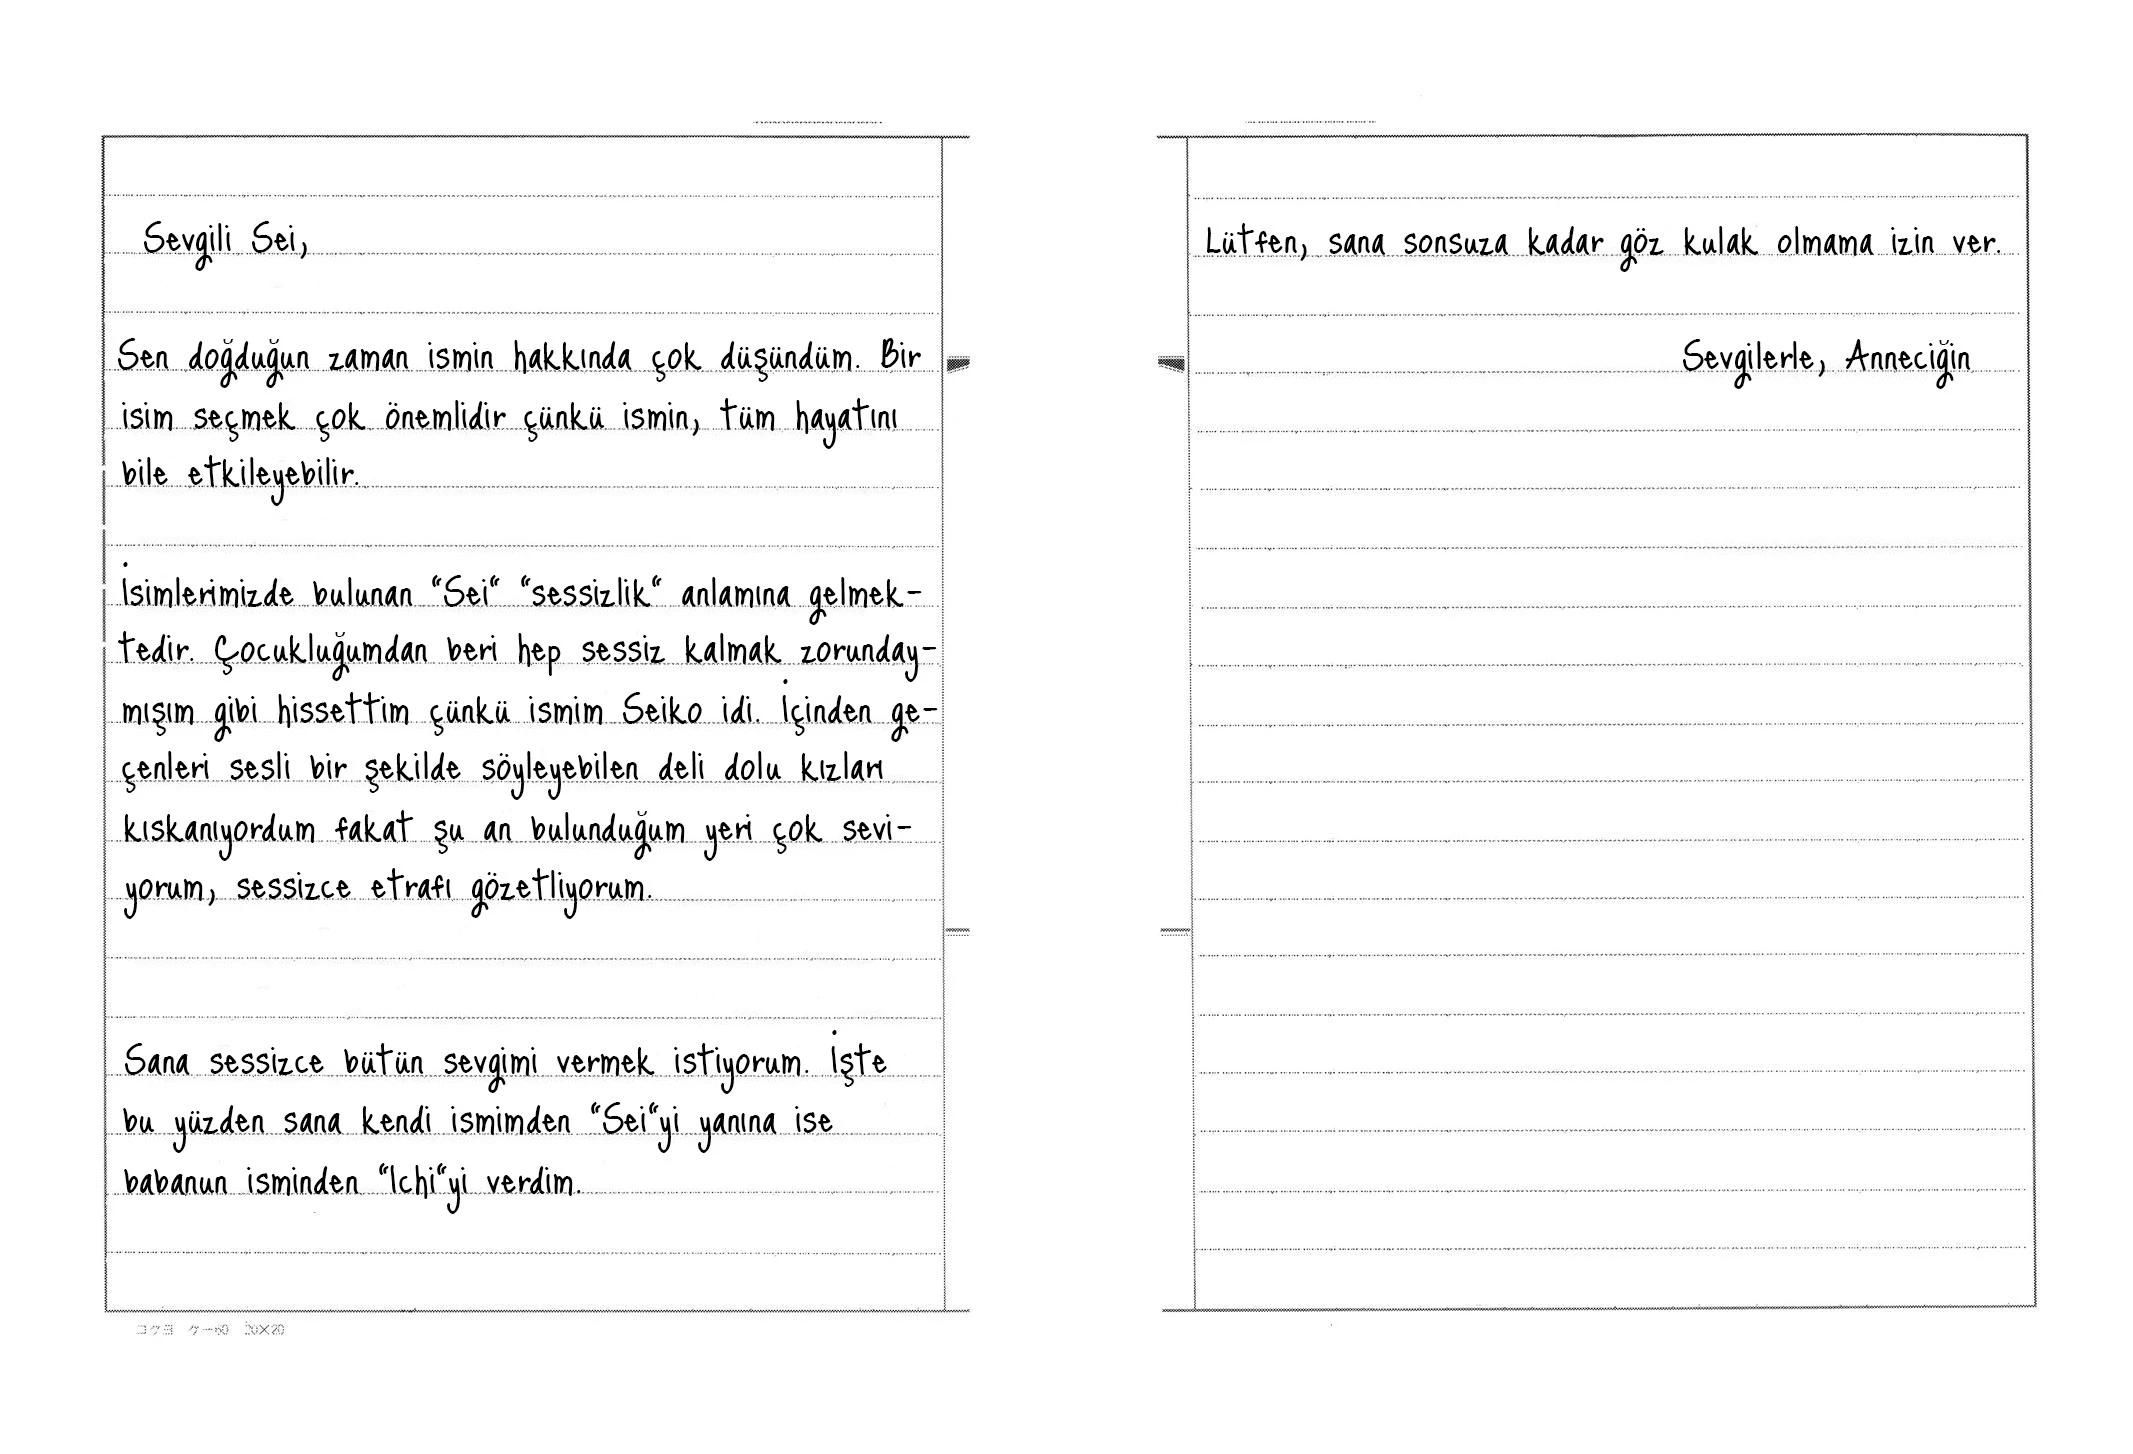 Sevgili Sei,
Sen doğduğun zaman ismin hakkında çok düşündüm. Bir
isim seçmek çok önemlidir çünkü ismin, tüm hayatını
bile etkileyebilir.
İsimlerimizde bulunan “Sei“ “sessizlik“ anlamına gelmek-
tedir. Çocukluğumdan beri hep sessiz kalmak zorunday-
mışım gibi hissettim çünkü ismim Seiko idi. İçinden ge-
çenleri sesli bir şekilde söyleyebilen deli dolu kızları
kıskanıyordum fakat şu an bulunduğum yeri çok sevi-
yorum, sessizce etrafı gözetliyorum.
Sana sessizce bütün sevgimi vermek istiyorum. İşte
bu yüzden sana kendi ismimden “Sei“yi yanına ise
babanun isminden “Ichi“yi verdim.
コクヨ ケー60 20×20
Lütfen, sana sonsuza kadar göz kulak olmama izin ver.
Sevgilerle, Anneciğin